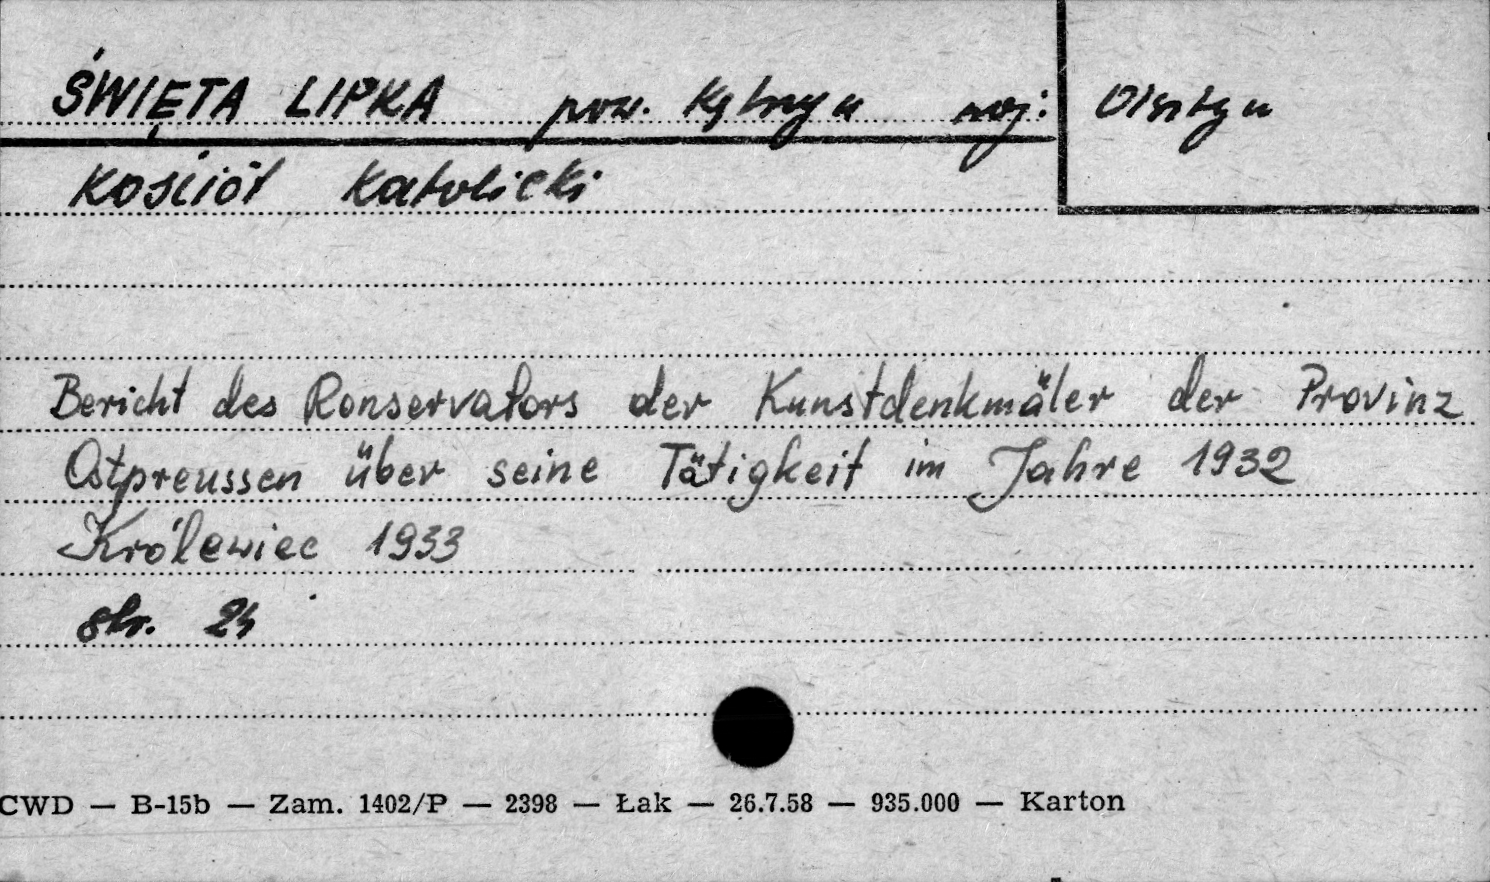 ŚWIĘTA LIPKA pow. Kętrzyn woj: Olsztyn
Kościół Katolicki
Bericht des Konservators der Kunstdenkmäler der Provinz
Ostpreussen über seine Tätigkeit im Jahre 1932
Królewiec 1933
str. 24
CWD — B-15b — Zam. 1402/P — 2398 — Łak — 26.7.58 — 935.000 — Karton